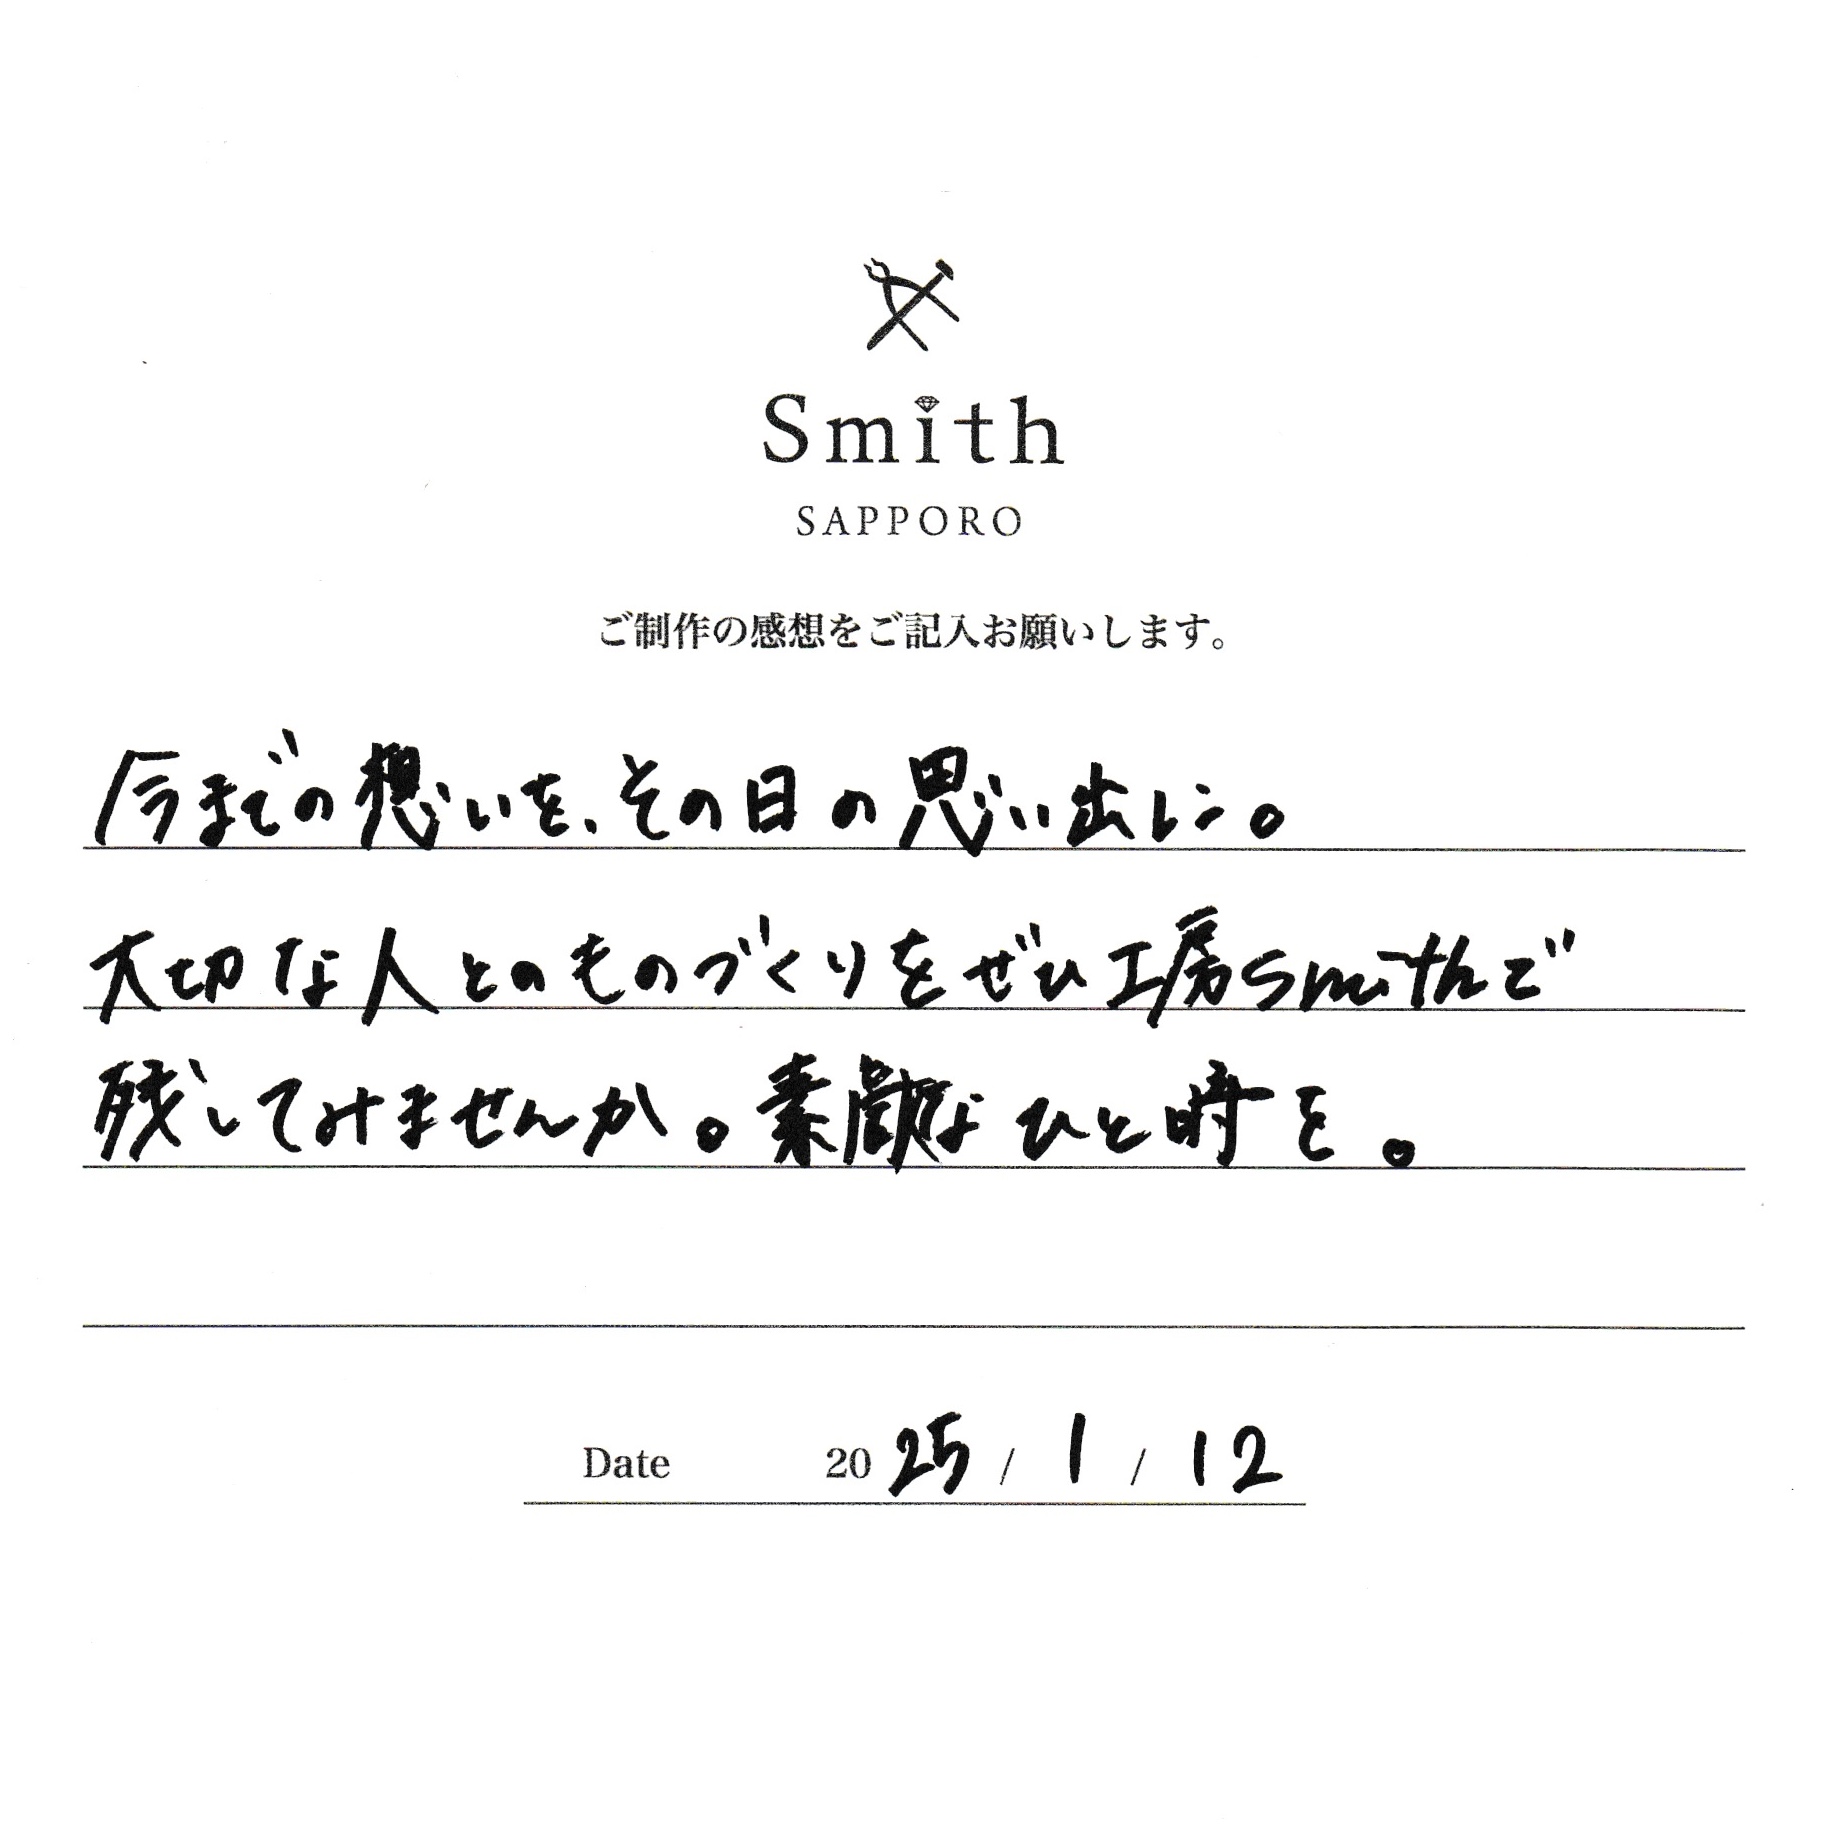 Smith
SAPPORO
ご制作の感想をご記入お願いします。
「今までの想いを、その日の思い出に。
大切な人とのものづくりをぜひ工房smithで
残してみませんか。素敵なひと時を。
Date 2025/1/12